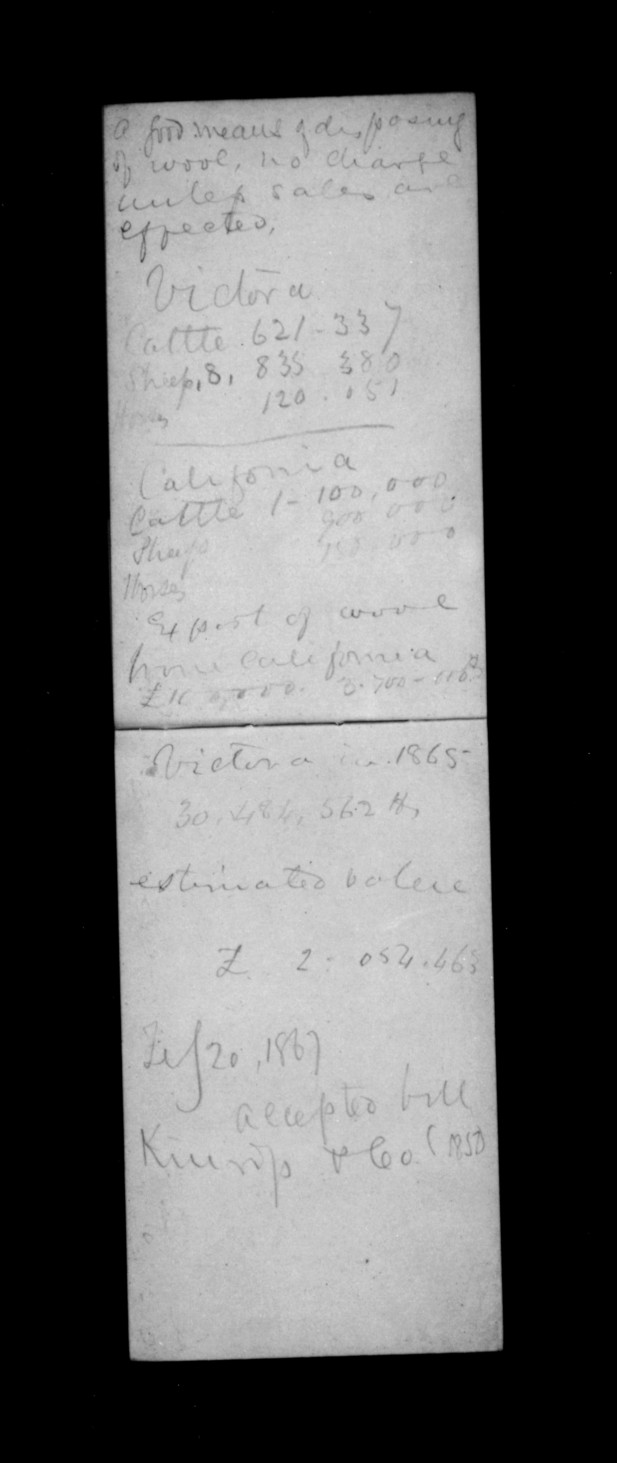 a good means of disposing
of wool, no charge
unless sales are
effected.
Victoria
Cattle. 621-337
Sheep, 8, 835 380
Horses 120.051
California
Cattle 1-100,000
Sheep 900 000
Horses 000
Export of wool
from California
£ 3.700-000 lbs
Victoria in 1865
30.484, 562 lbs
estimated value
£ 2. 054.465
Feb 20, 1867
accepted bill
& Co.